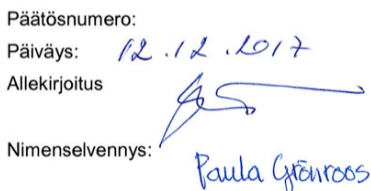 Päätösnumero:
Päiväys: 12.12.2017
Allekirjoitus
Nimenselvennys: Paula Grönroos